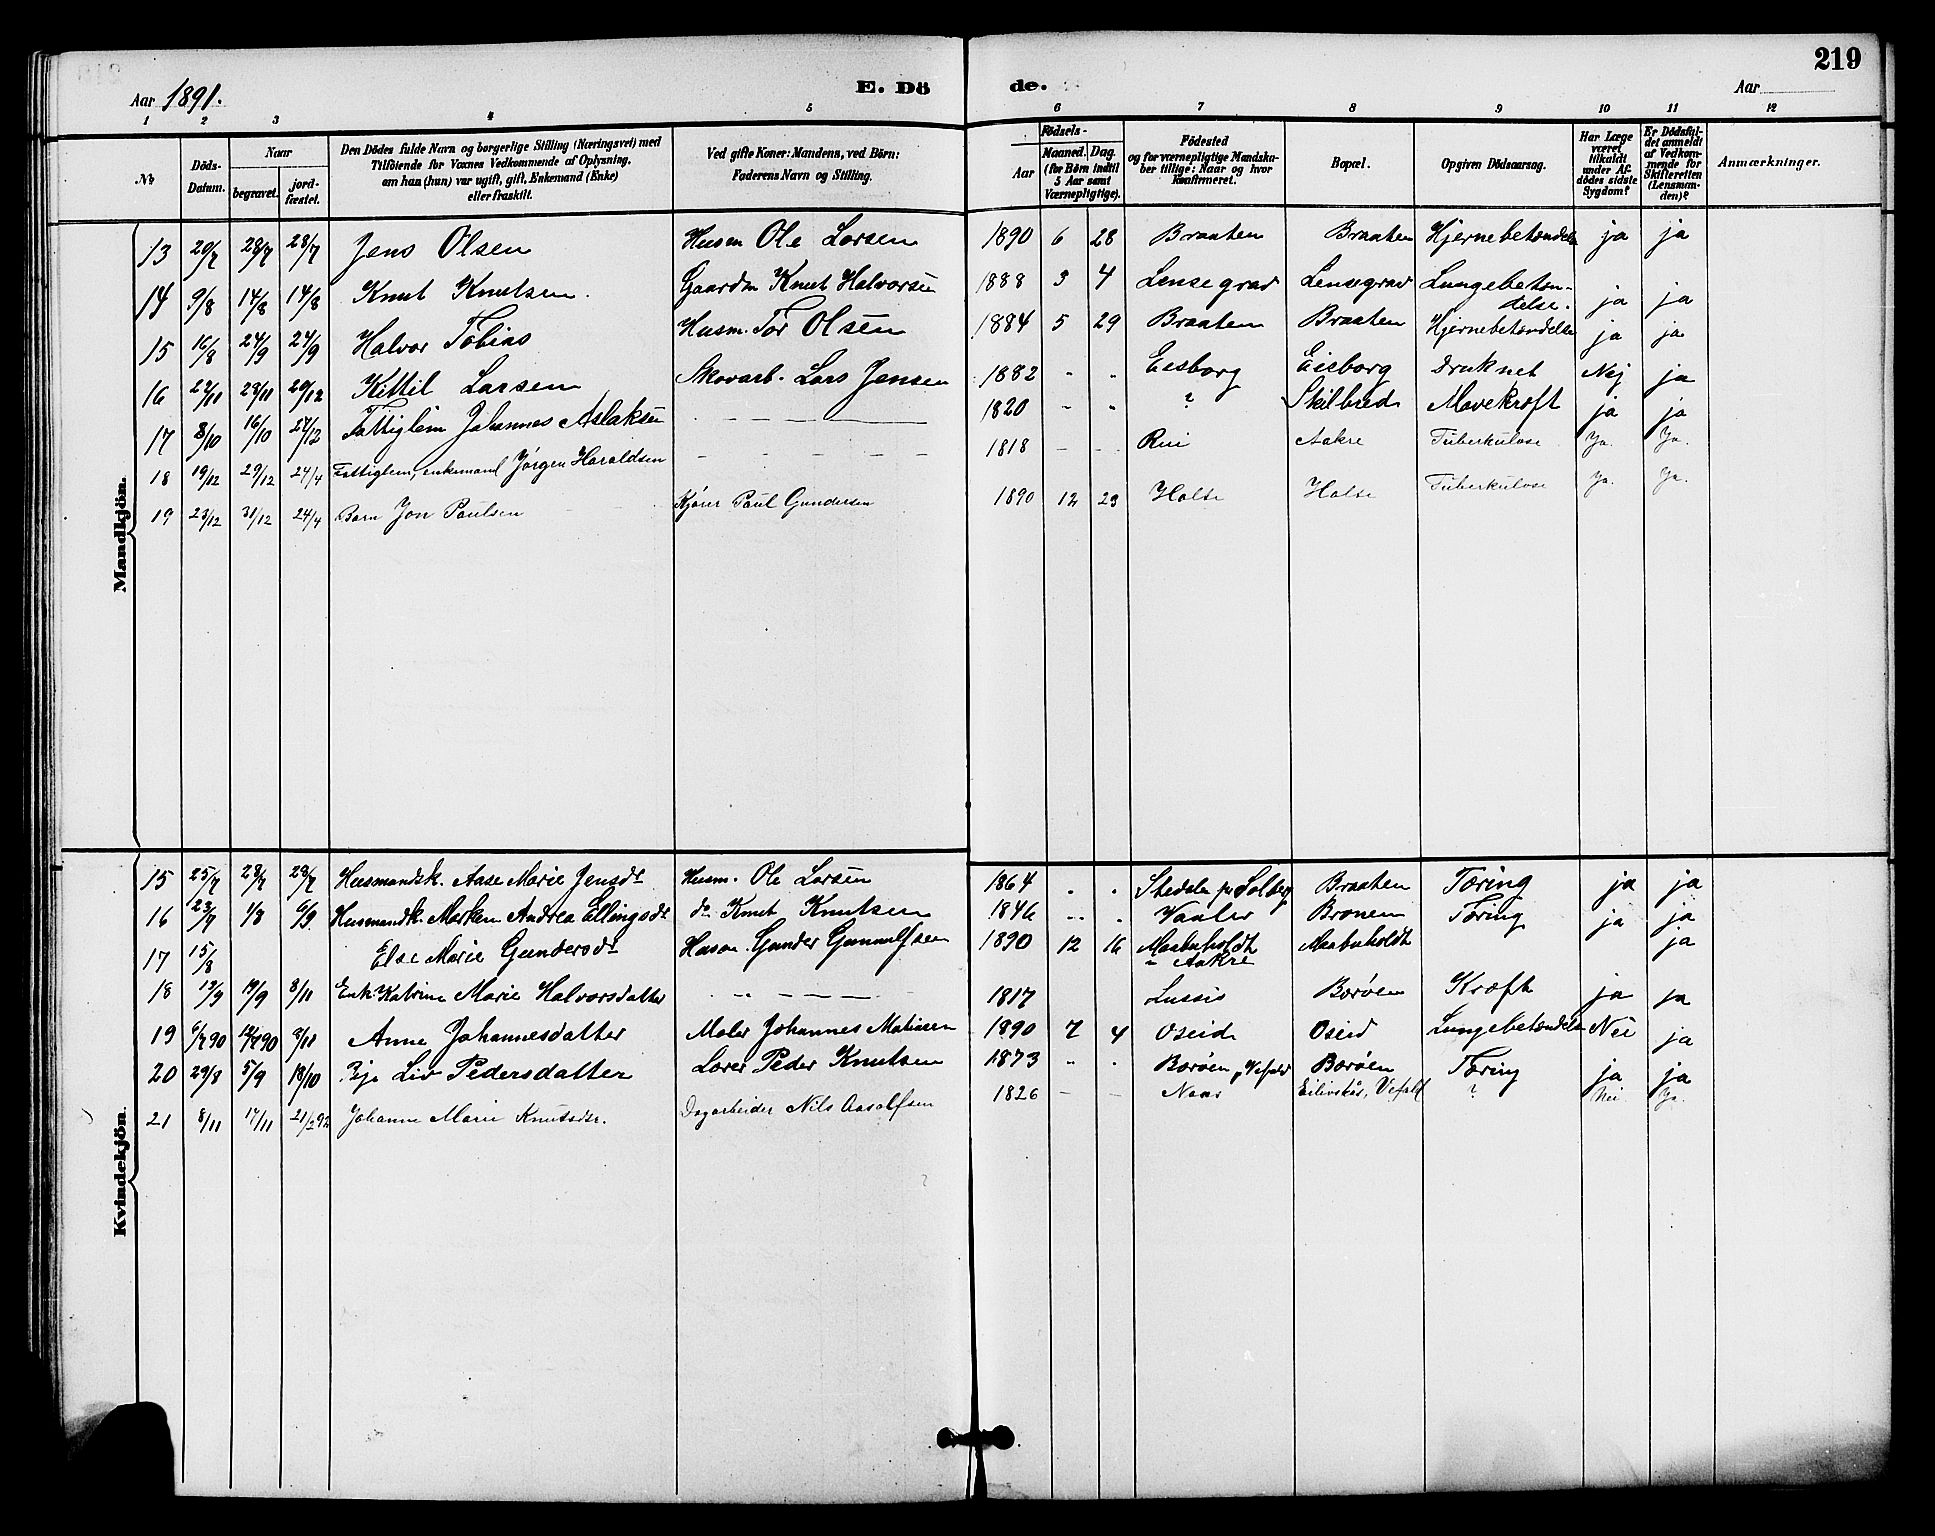 219
Aar 1891. E. Dö de. Aar
1 2 3 4 5 6 7 8 9 10 11 12
№
Döds-Datum.
Naar
begravet.
jord-fæstet.
Den Dödes fulde Navn og borgerlige Stilling (Næringsvei) med
Tilföiende for Voxnes Vedkommende af Oplysning,
om han (hun) var ugift, gift, Enkemand (Enke)
eller fraskilt.
Ved gifte Koner: Mandens, ved Börn:
Faderens Navn og Stilling.
Födsels-
Aar
Maaned. Dag.
(for Börn indtil
5 Aar samt
Værnepligtige).
Födested
og for værnepligtige Mandska-
ber tillige: Naar og hvor
Konfirmeret.
Bopæl.
Opgiven Dödsaarsag.
Har Læge
været
tilkaldt
under Af-
dödes sidste
Sygdom?
Er Dödsfal-
det anmeldt
af Vedkom-
mende for
Skifteretten
(Lensman-
den)?
Anmærkninger.
Mandkjön.
13 20/7 28/7 28/7 Jens Olsen Husm Ole Larsen 1890 6 28 Braaten Braaten Hjernebetændelse ja ja
14 9/8 14/8 14/8 Knut Knutsen. Gaardm Knut Halvorsen 1888 3 4 Lensegrav Lensegrav Lungebetæn-
delse. ja ja
15 16/8 24/9 24/9 Halvor Tobias Husm. Tor Olsen 1884 5 29 Braaten Braaten Hjernebetændelse ja ja
16 22/11 28/11 20/12 Kittil Larsen Skovarb. Lars Jensen 1882 - - Eisborg Eisborg Druknet Nej ja
17 8/10 16/10 27/12 Fattiglem Johannes Aslaksen - - - 1820 - - ? Skilbred Mavekræft ja ja
18 19/12 29/12 24/4 Fattiglem, enkemand Jørgen Haraldsen - - - - - 1818 - - Rui Aakre Tuberkulose Ja. Ja.
19 23/12 31/12 24/4 Barn Jon Paulsen Kjører Paul Gundersen 1890 12 23 Holte Holte Tuberkulose Ja. Ja.
Kvindekjön.
15 25/7 28/7 28/7 Husmandsk. Aase Marie Jensdr Husm. Ole Larsen 1864 - - Stedsla p Solberg Braaten Tæring ja ja
16 23/7 1/8 6/9 Husmandk. Marken Andrea Ellingsdr do Knut Knutsen 1846 - - Vaaler Bronen Tæring ja ja
17 15/8 Else Marie Gundersdr Husm. Gunder Gunnulfsen 1890 12 16 Maabuholdt
" Aakre Maabuholdt ja
18 13/9 19/9 8/11 Enk. Katrine Marie Halvorsdatter - - - 1817 Lussis Borøen Kræft ja ja
19 6/7 90 14/7 90 8/11 Anne Johannesdatter Maler Johannes Matiasen 1890 7 4 Oseid Oseid Lungebetændelse Nei ja
20 29/8 5/9 18/10 Pige Liv Pedersdatter Lærer Peder Knutsen 1873 - - Borøen p Vefald Borøen Tæring ja ja
21 8/11 17/11 21/2 92 Johanne Marie Knutsdtr. Dagarbeider Nils Aasolfsen 1826 - - Naas Eilivskås, Vefald ? Nei Ja.